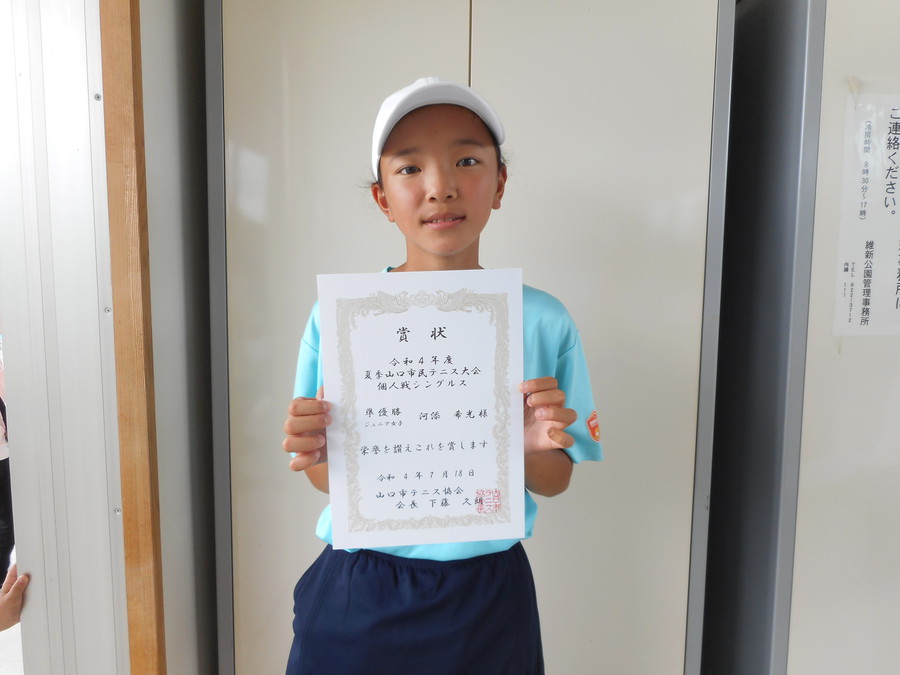 賞状
令和4年度
夏季山口市民テニス大会
個人戦シングルス
準優勝 河添 希光様
ジュニア女子
栄誉を讃えこれを賞します
令和 4 年 7 月 18 日
山口市テニス協会
会長 下藤 久
ご連絡ください。
8時30分~17時)
維新公園管理事務所